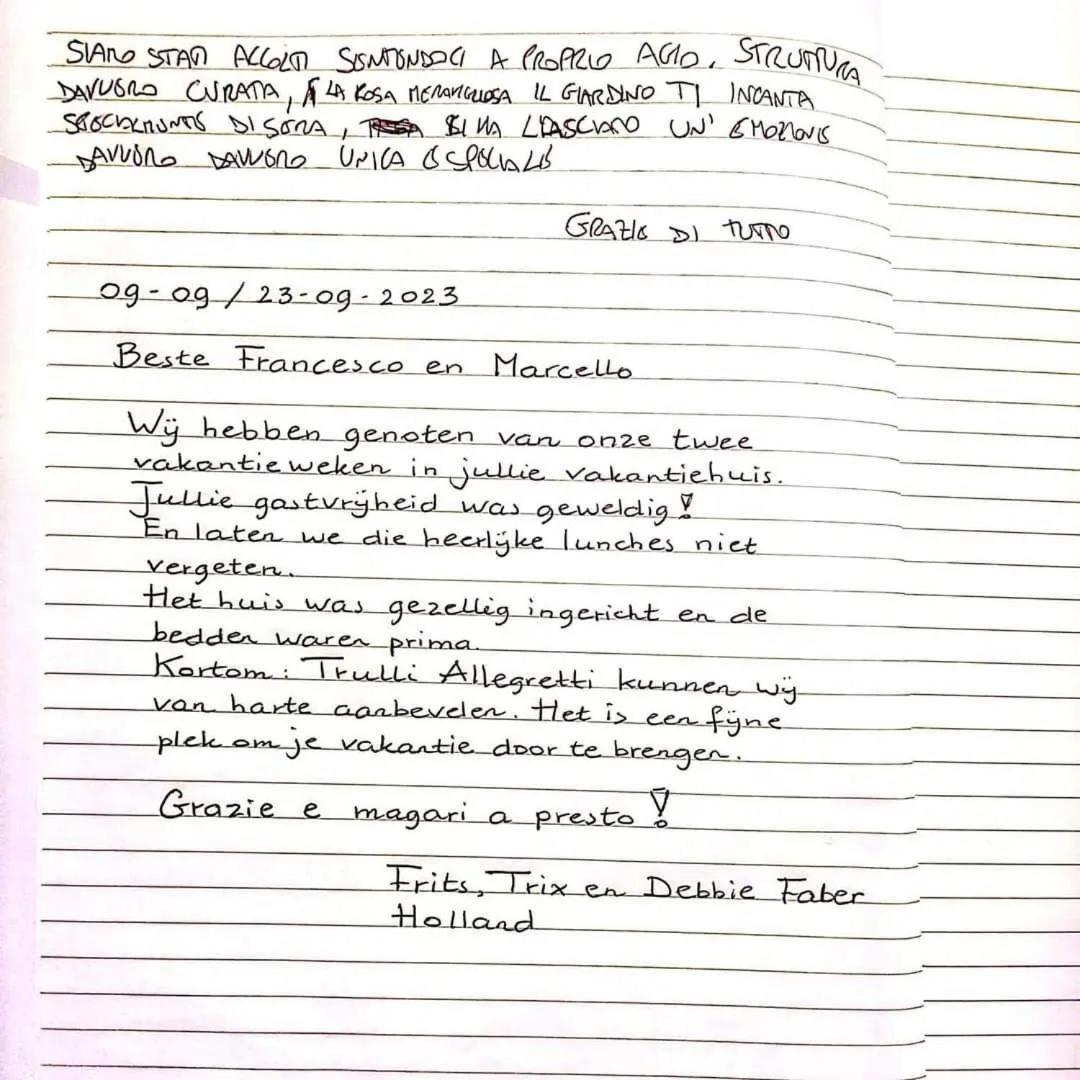 SIAMO STATI ACCOLTI SENTENDOCI A PROPRIO AGIO. STRUTTURA
DAVVERO CURATA, LA COSA MERAVIGLIOSA IL GIARDINO TI INCANTA
SPECIALMENTE DI SERA, CI HA LASCIATO UN' EMOZIONE
DAVVERO DAVVERO UNICA E SPECIALE
GRAZIE DI TUTTO
09-09 / 23-09-2023
Beste Francesco en Marcello
Wij hebben genoten van onze twee
vakantieweken in jullie vakantiehuis.
Jullie gastvrijheid was geweldig!
En laten we die heerlijke lunches niet
vergeten.
Het huis was gezellig ingericht en de
bedden waren prima.
Kortom: Trulli Allegretti kunnen wij
van harte aanbevelen. Het is een fijne
plek om je vakantie door te brengen.
Grazie e magari a presto!
Frits, Trix en Debbie Faber
Holland